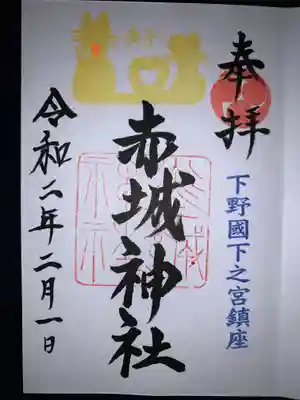 奉拝
下野國下之宮鎮座
赤城神社
令和二年二月一日